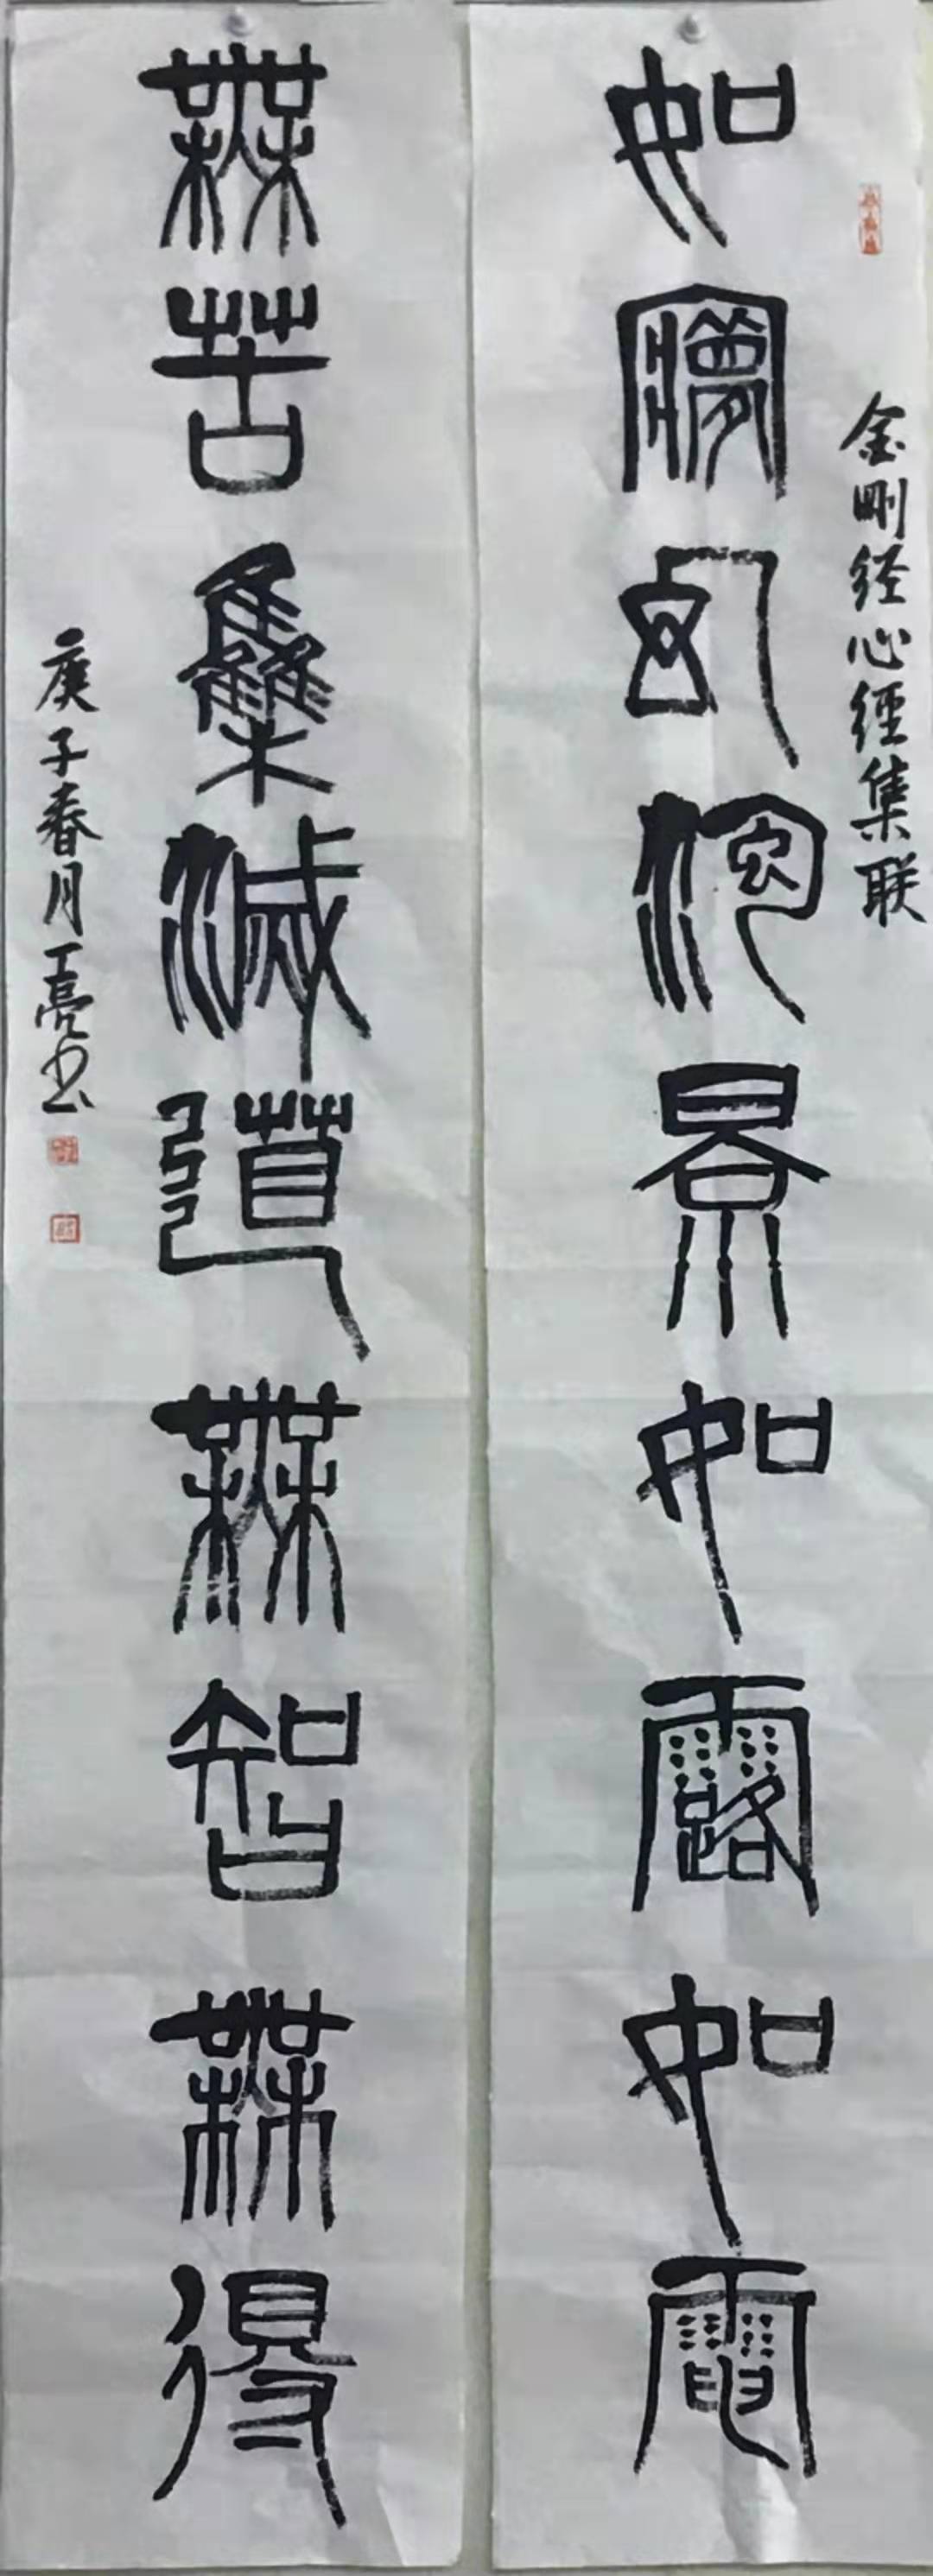 金刚经心經集联
如夢幻泡景如露如電
無苦集滅道無智無得
庚子春月丁亮书